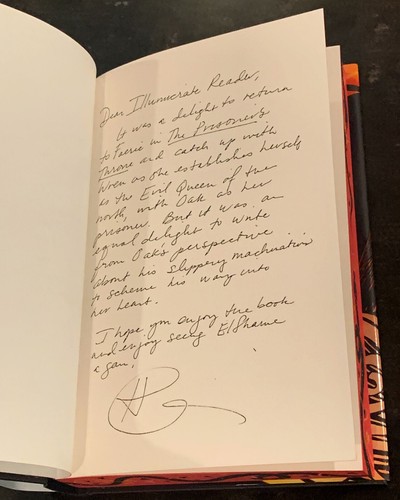 Dear Illumicrate Reader,
It was a delight to return
to Faerie in The Prisoner's
Throne and catch up with
Wren as she establishes herself
as the Evil Queen of the
north, with Oak as her
prisoner. But it was an
equal delight to write
from Oak's perspective . . .
about his slippery machination
to scheme his way into
her heart.
I hope you enjoy the book
and enjoy seeing Elfhame
again.